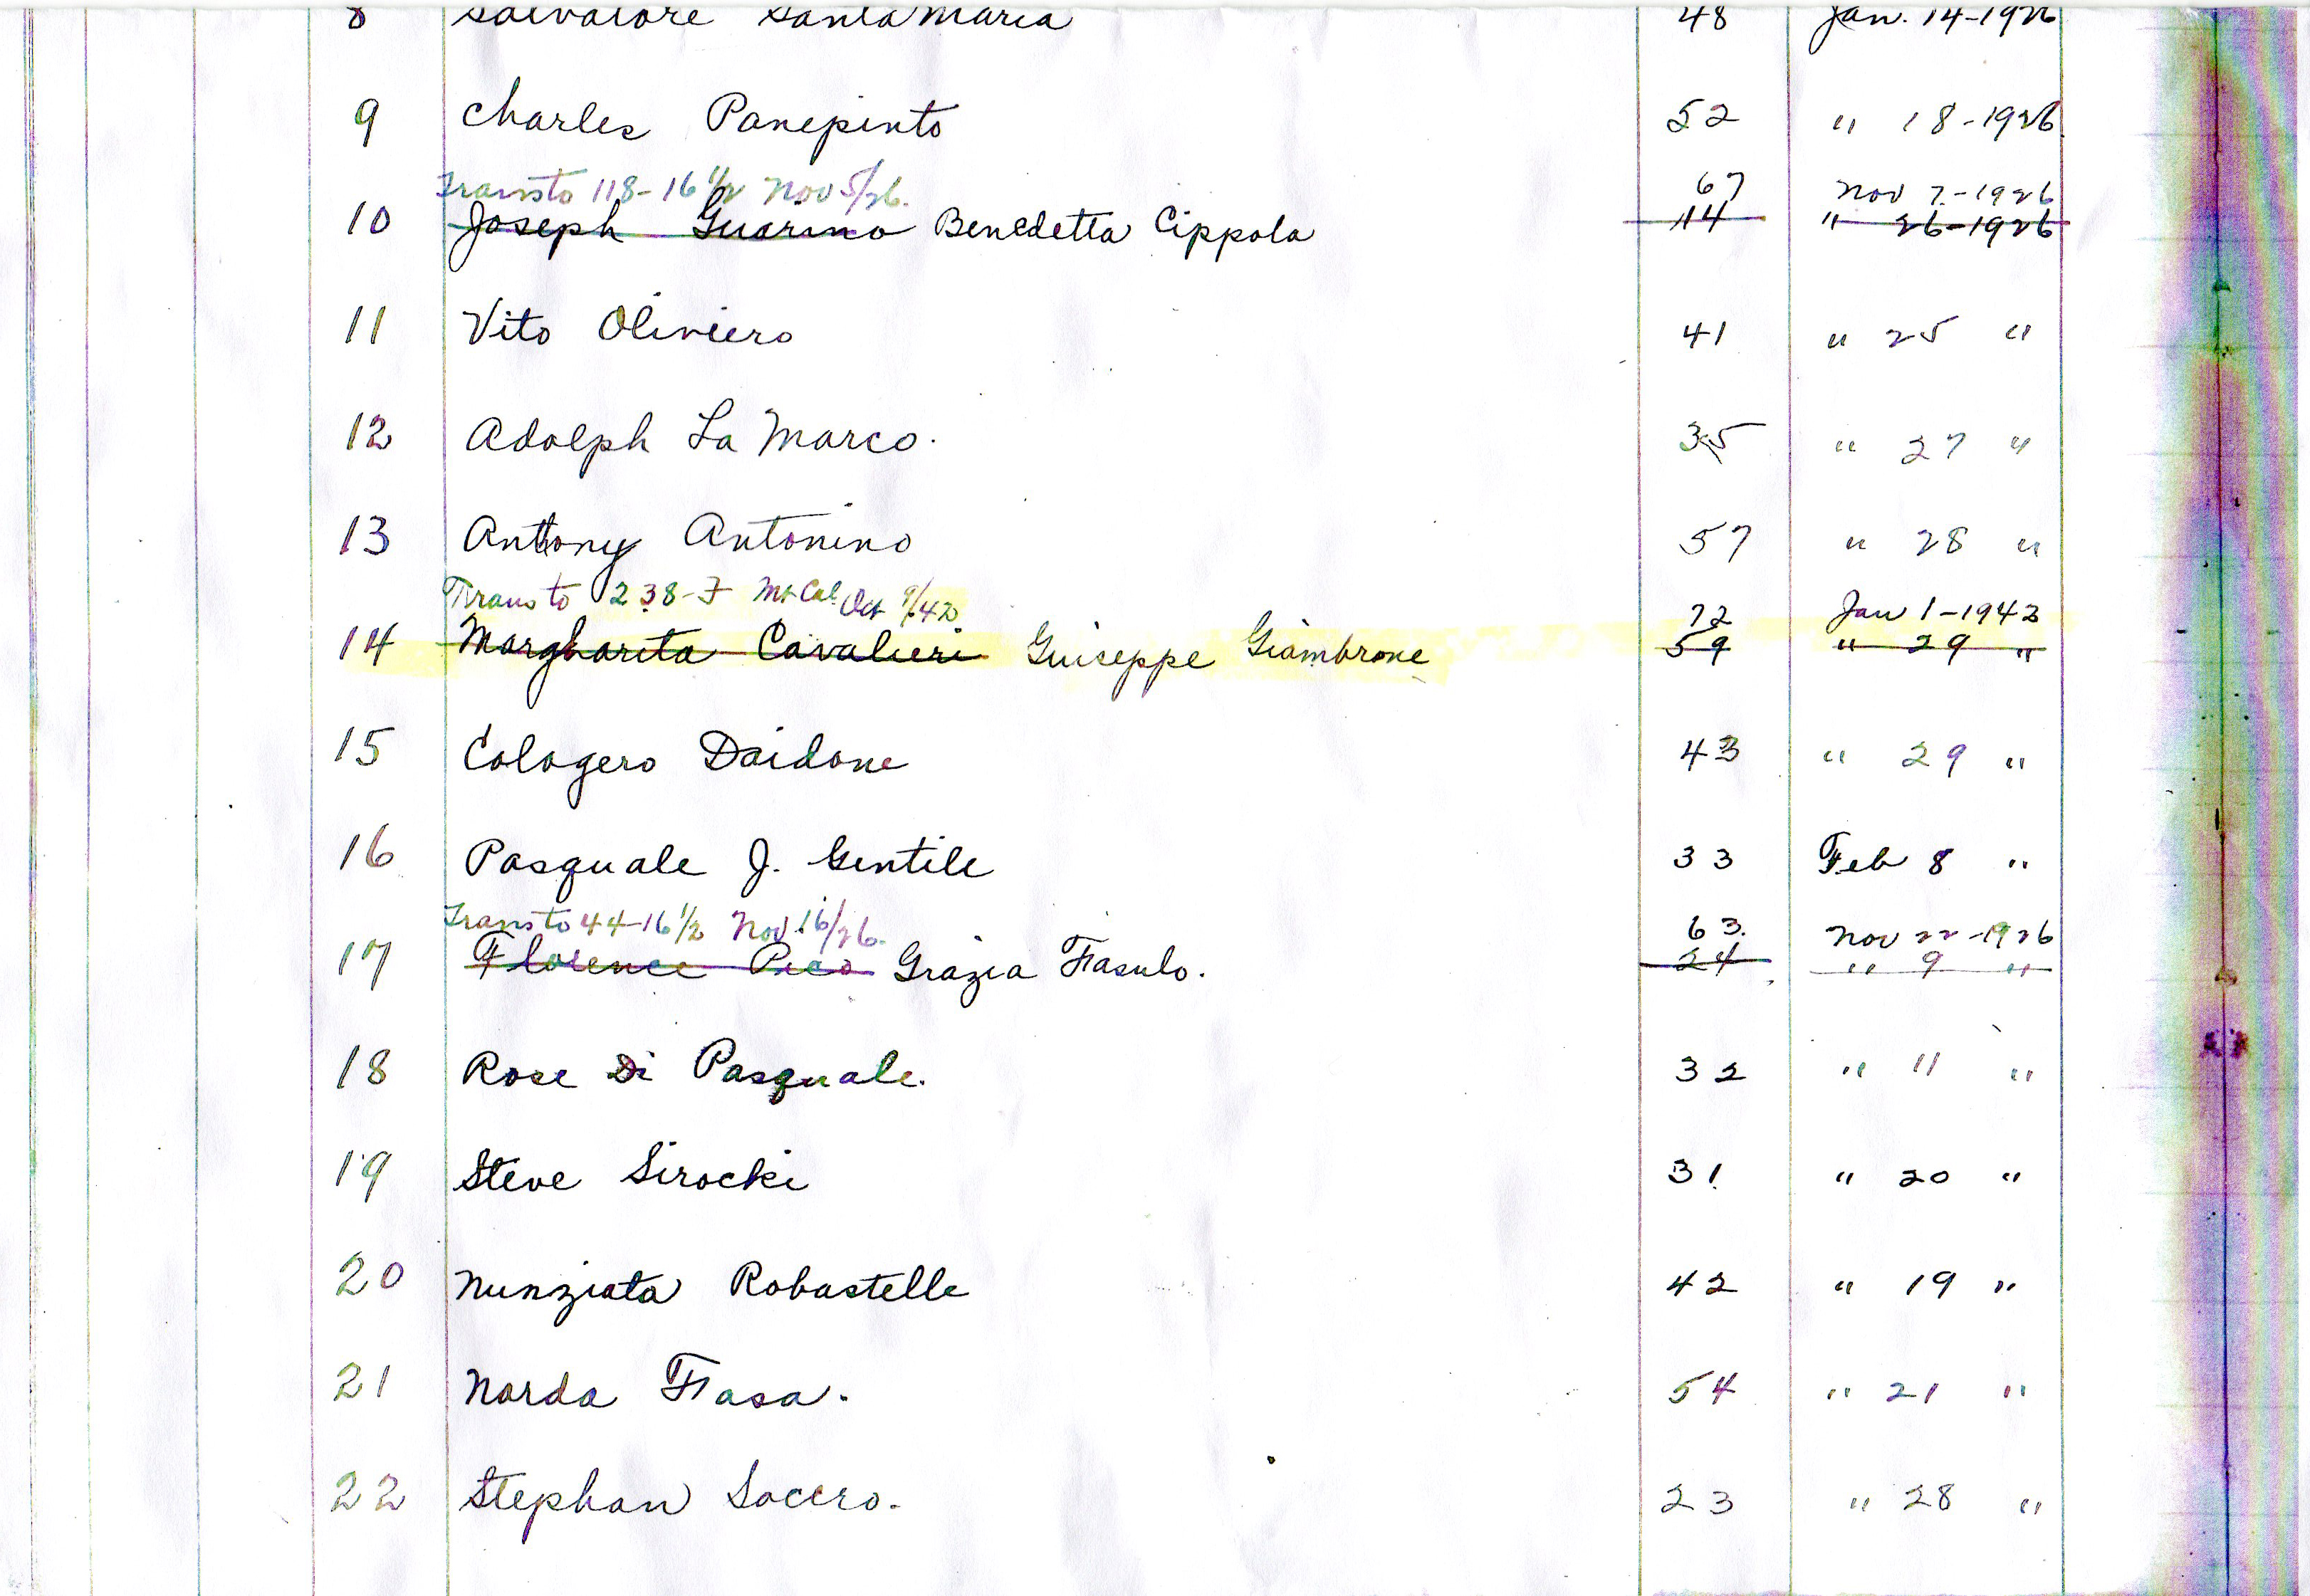 8 Salvatore Santa Maria 48 Jan. 14-1926
9 Charles Panepinto 52 " 18-1926
Trans to 118-16 1/2 Nov 5/26. 67 Nov 7-1926
10 Joseph Guarino Benedetta Cippola 14 " 26-1926
11 Vito Oliviero 41 " 25 "
12 Adolph La Marco. 35 " 27 "
13 Antony Antonino 57 " 28 "
Trans to 238-F Mt Cal Oct 9/42 72 Jan 1-1943
14 Margharita Cavalieri Guiseppe Giambrone 59 " 29 "
15 Cologero Daidone 43 " 29 "
16 Pasquale J. Gentile 33 Feb 8 "
Trans to 44-16 1/2 Nov 16/26. 63. Nov 22-1926
17 Florence Pico Grazia Fasulo. 24 " 9 "
18 Rose Di Pasquale. 32 " 11 "
19 Steve Sirocki 31. " 20 "
20 Nunziata Robastelle 42 " 19 "
21 Narda Fasa. 54 " 21 "
22 Stephan Socero. 23 " 28 "